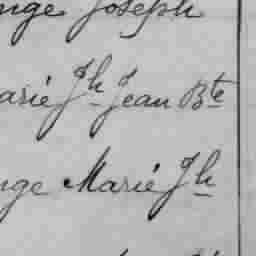 nge Joseph
arie Jh Jean Bte
nge Marie Jh